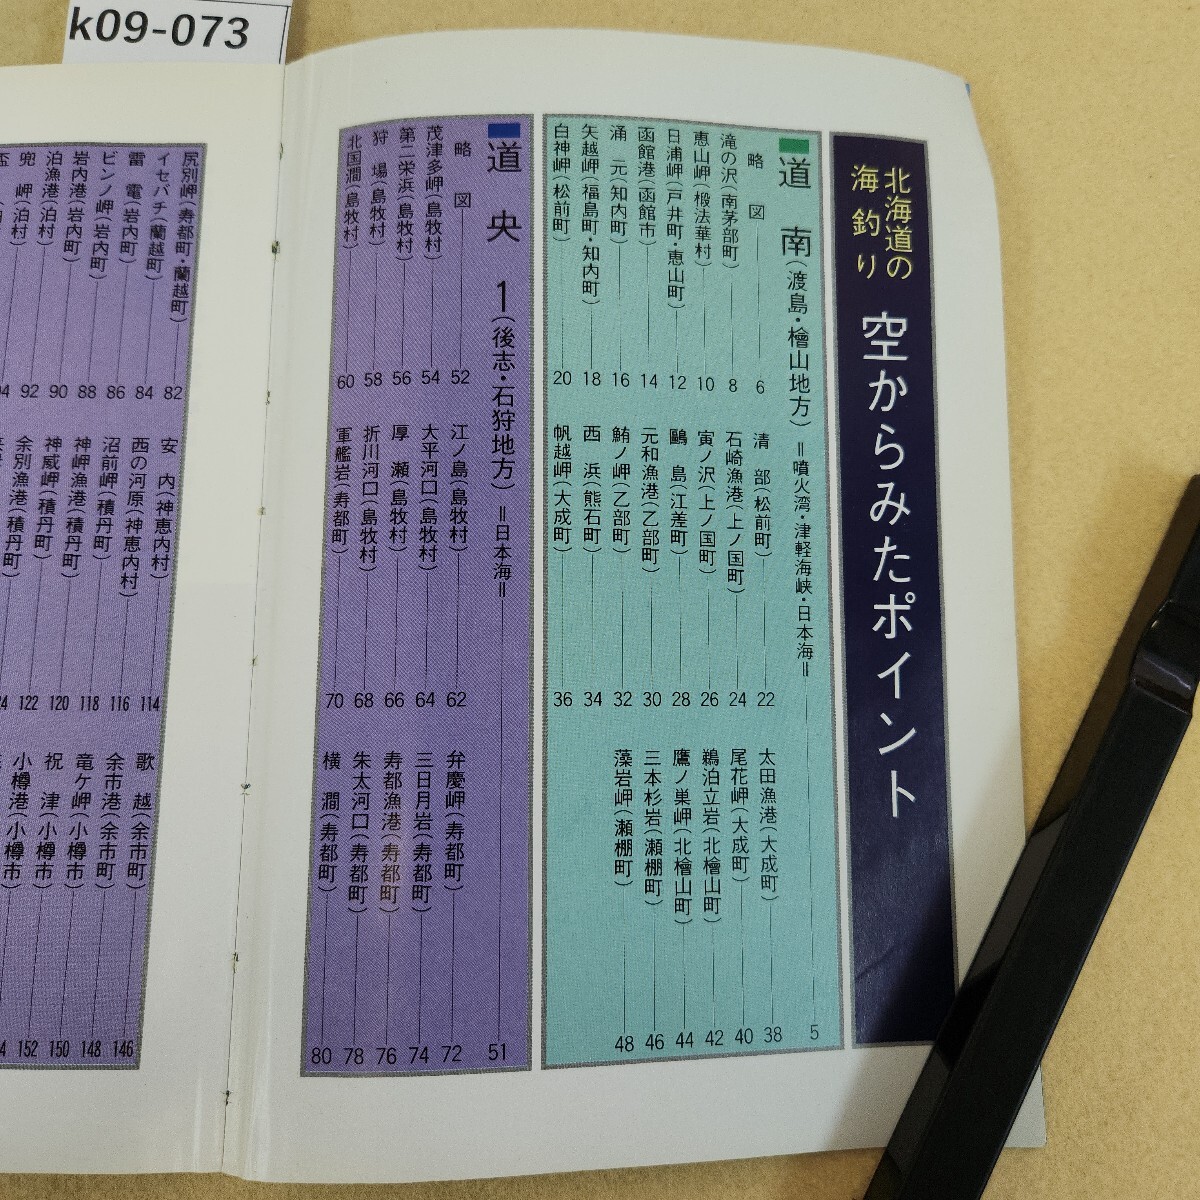 k09-073
北海道の
海釣り
空からみたポイント
道南(渡島・檜山地方)=噴火湾・津軽海峡・日本海= 5
略図 6
滝の沢(南茅部町) 8
恵山岬(椴法華村) 10
日浦岬(戸井町・恵山町) 12
函館港(函館市) 14
涌元(知内町) 16
矢越岬(福島町・知内町) 18
白神岬(松前町) 20
清部(松前町) 22
石崎漁港(上ノ国町) 24
寅ノ沢(上ノ国町) 26
鷗島(江差町) 28
元和漁港(乙部町) 30
鮪ノ岬(乙部町) 32
西浜(熊石町) 34
帆越岬(大成町) 36
太田漁港(大成町) 38
尾花岬(大成町) 40
鵜泊立岩(北檜山町) 42
鷹ノ巣岬(北檜山町) 44
三本杉岩(瀬棚町) 46
藻岩岬(瀬棚町) 48
道央1(後志・石狩地方)=日本海= 51
略図 52
茂津多岬(島牧村) 54
第二栄浜(島牧村) 56
狩場(島牧村) 58
北国澗(島牧村) 60
江ノ島(島牧村) 62
大平河口(島牧村) 64
厚瀬(島牧村) 66
折川河口(島牧村) 68
軍艦岩(寿都町) 70
弁慶岬(寿都町) 72
三日月岩(寿都町) 74
寿都漁港(寿都町) 76
朱太河口(寿都町) 78
横澗(寿都町) 80
尻別岬(寿都町・蘭越町) 82
イセバチ(蘭越町) 84
雷電(岩内町) 86
ビンノ岬(岩内町) 88
岩内港(岩内町) 90
泊漁港(泊村) 92
兜岬(泊村)
安内(神恵内村) 114
西の河原(神恵内村) 116
沼前岬(積丹町) 118
神岬漁港(積丹町) 120
神威岬(積丹町) 122
余別漁港(積丹町)
歌越(余市町) 146
余市港(余市町) 148
竜ケ岬(小樽市) 150
祝津(小樽市) 152
小樽港(小樽市)